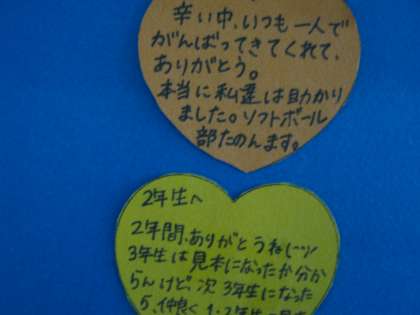 辛い中、いつも一人で
がんばってきてくれて、
ありがとう。
本当に私達は助かり
ました。ソフトボール
部たのんます。
2年生へ
2年間、ありがとうねーッ!
3年生は見本になったか分か
らんけど、次3年生になった
ら、仲良く1・2年生